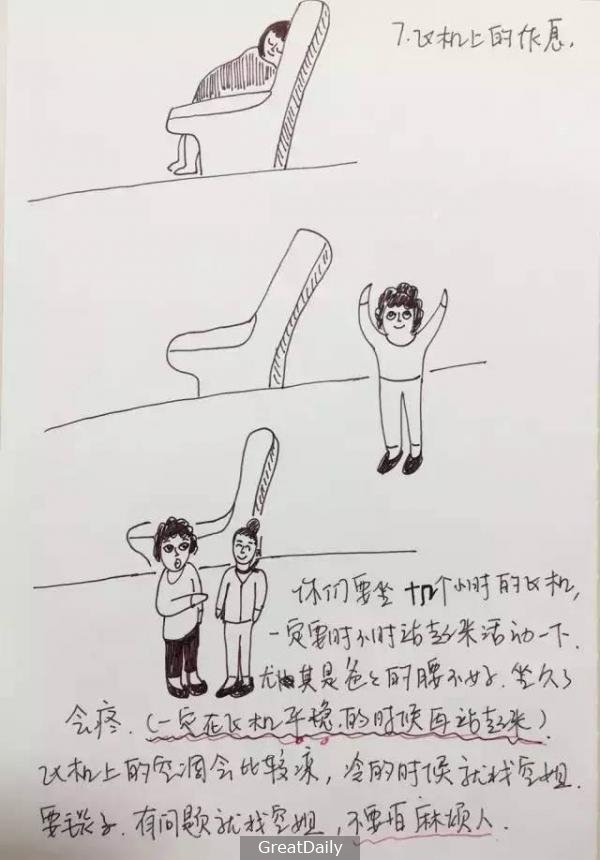 7.飞机上的作息.
你们要坐十几个小时的飞机,
一定要时不时站起来活动一下.
尤其是爸々的腰不好.坐久了
会疼.(一定在飞机平稳的时候再站起来)
飞机上的空调会比较凉,冷的时候就找空姐.
要毯子.有问题就找空姐,不要怕麻烦人.
GreatDaily